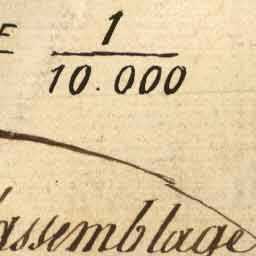 E 1/10.000
'assemblage